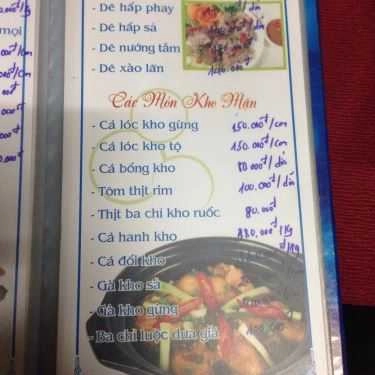 mọi
- Dê hấp phay
- Dê hấp sả
- Dê nướng tảm
- Dê xào lăn
Các Món Kho Mặn
- Cá lóc kho gừng 150.000đ/con
- Cá lóc kho tộ 150.000đ/con
- Cá bống kho 80.000đ/dĩa
- Tôm thịt rim 100.000đ/dĩa
- Thịt ba chỉ kho ruốc 80.000đ
- Cá hanh kho 880.000đ/kg
- Cá đối kho đ/kg
- Gà kho sả
- Gà kho gừng
- Ba chỉ luộc dưa giá